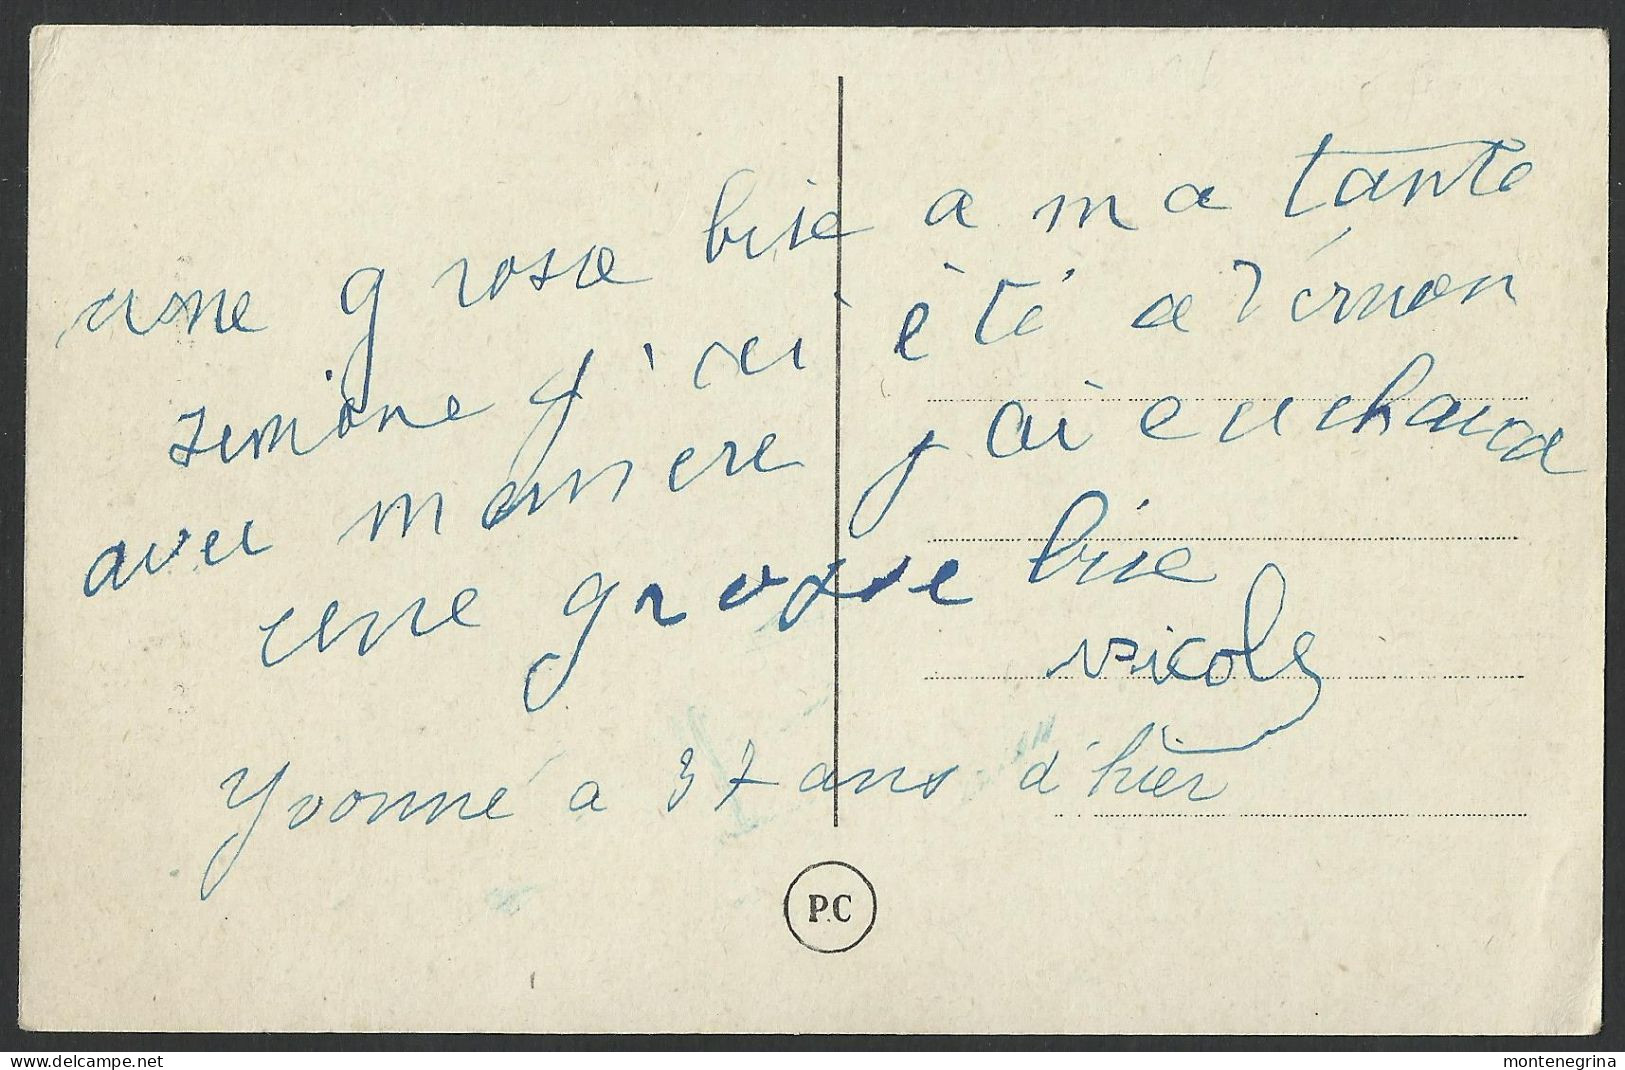 une grose bise a ma tante
simone j'ai été a Vérnon
avec memere j'ai eu chaud
une grosse bise
nicole
Yvonne a 37 ans d'hier
P.C
Ref. delcampe.net
montenegrina